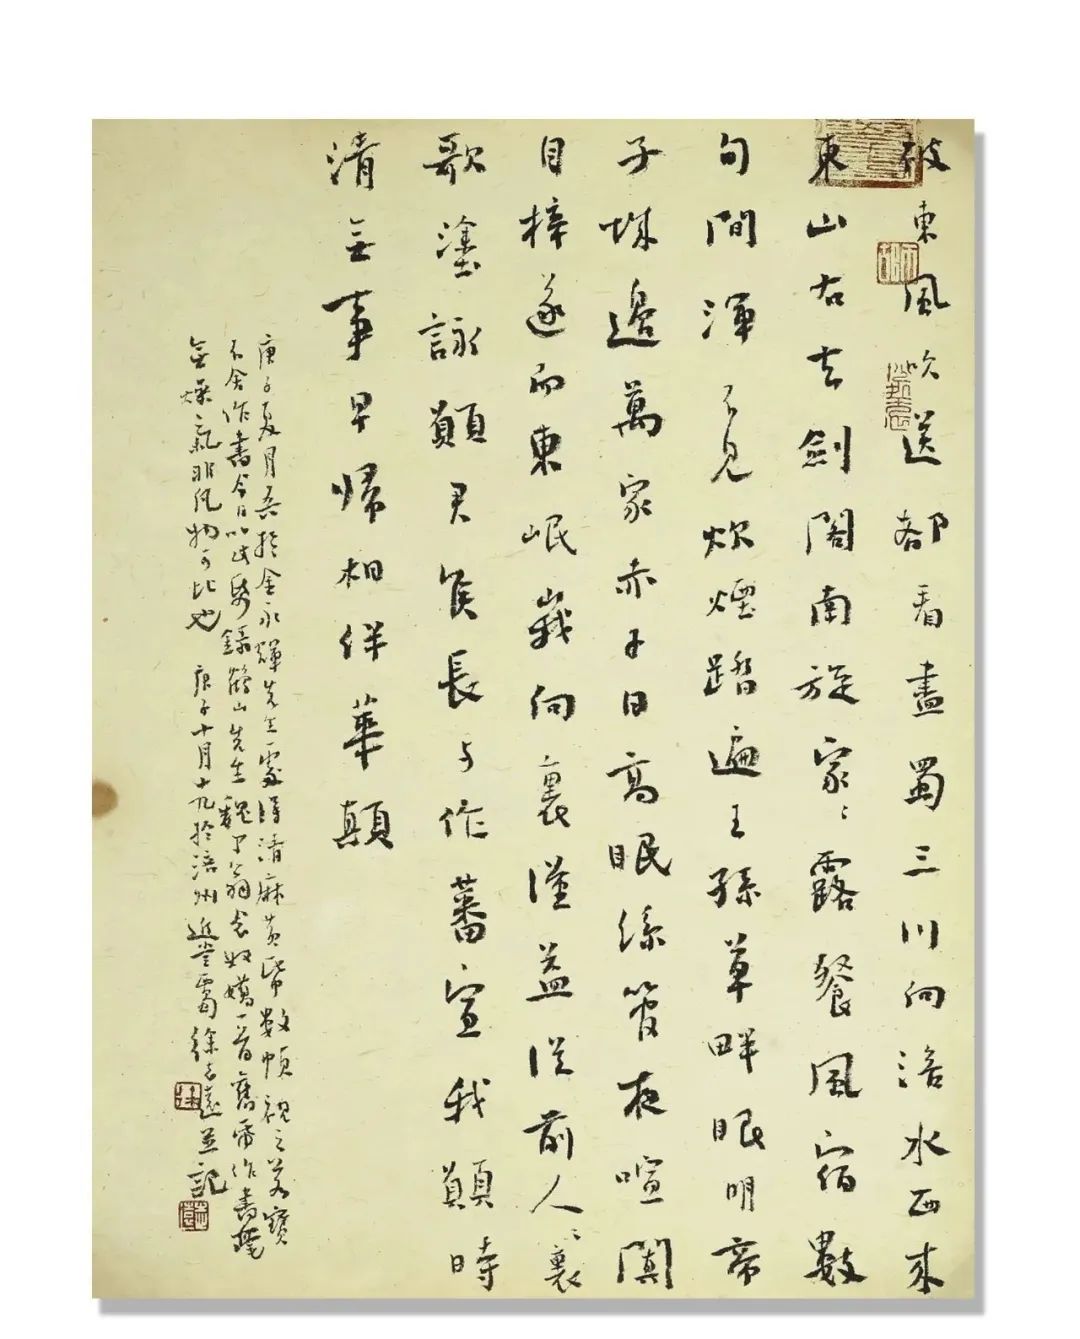 被東風吹送都看盡蜀三川向涪水西來
東山右去劍閣南旋家〻露餐風宿數
旬間渾不見炊煙踏遍王孫草畔眼明帝
子城邊萬家赤子日高眠絲管夜喧闐
自梓遂而東岷峩向裏漢益從前人〻裏
歌塗詠願君侯長與作蕃宣我願時
清無事早歸相伴華顛
庚子夏月吾於金永輝先生處得清麻黃紙數幀視之若寶
不舍作書今日以此紙錄鶴山先生魏了翁念奴嬌一首舊紙作書
無燥氣非凡物可比也 庚子十月十九於涪州 徐 並記